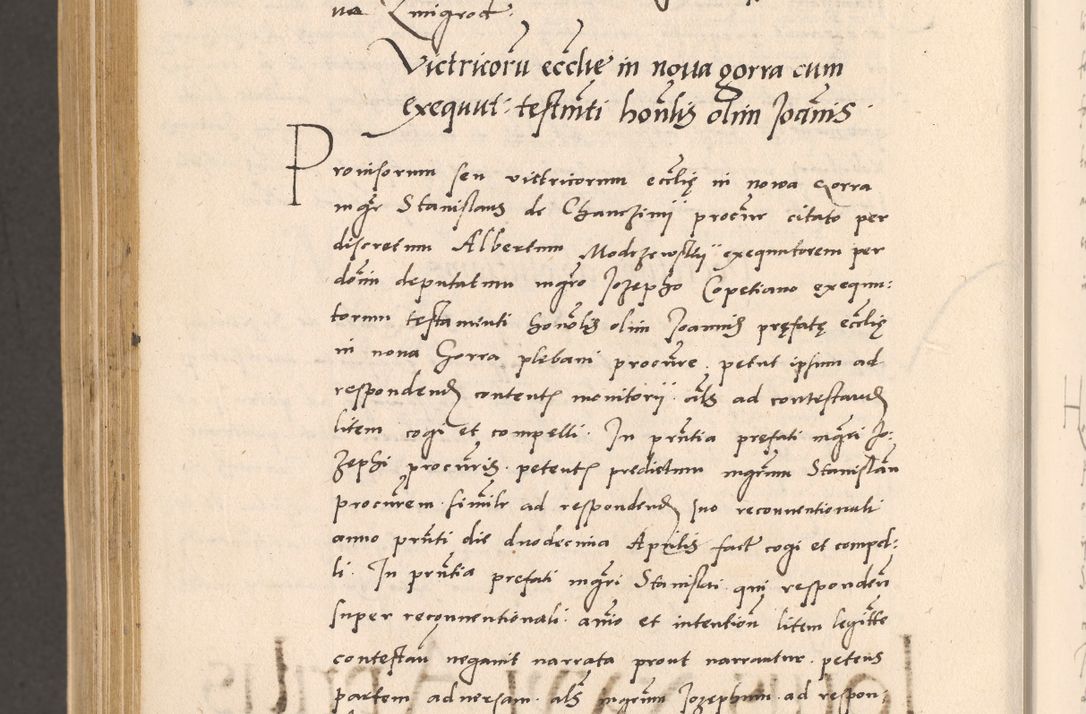 na Zmigrod.
Victricorũ eccĺie in noua gorra cum
exequut. testm̃ti hoñlis olim Joañis
Prouisorum seu victricorum eccĺię in nowa Gorra
mgr̃ Stanislaus de Chanczinii procũr citato per
discretum Albertum Modrzewskii exequutorem per
dom̃ deputatum mgr̃o Jozepho Copetiano exequu:
torum testamenti honolis olim Joannis pręfatę eccĺię
in noua Gorra plebani procũre. petut ipsum ad
respondend contentis monitorii. als ad contestand
litem cogi et compelli. In prñtia prefati mgr̃i Jo:
zephi procũris. petentis predictum mgr̃um Stanislau
procũrem. similr ad respondend suo reconuentionali
anno prñti die duodecima Aprilis fact cogi et compel:
li. In prñtia prefati mgr̃i Stanislai qui responden
super reconuentionali. anĩo et intention litem legitte
contestan negauit narrata prout narrantur. petens
partem aduersam. als mgr̃um Jozephum. ad respon: